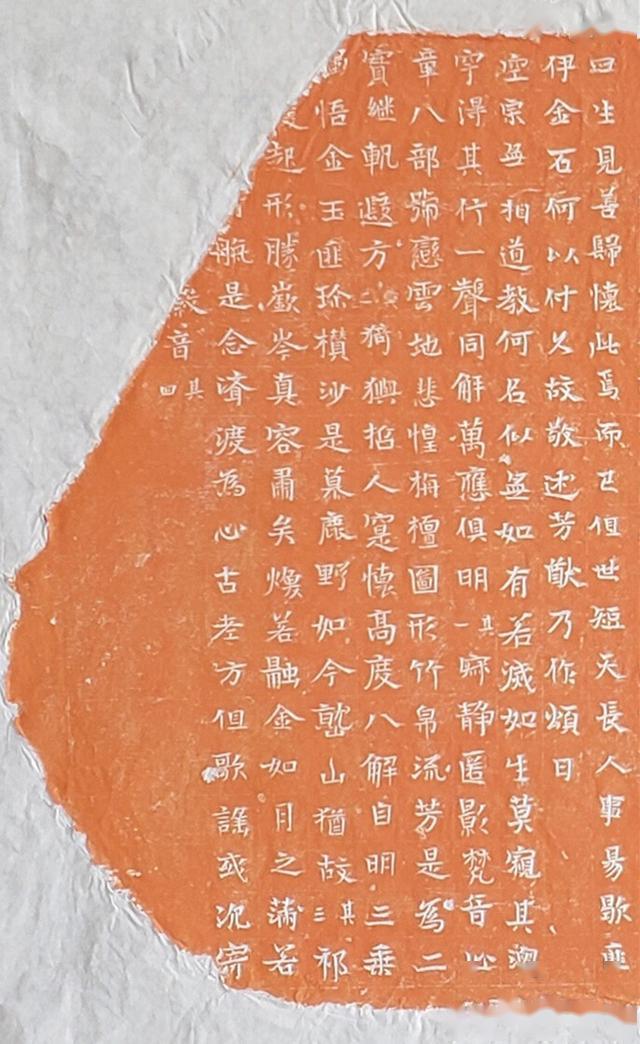 生見善歸懷此焉而已但世短天長人事易歇匪
伊金石何以付久故敬述芳猷乃作頌曰
空宗無相道教何名似無如有若滅如生莫窺其淵
罕得其行一聲同解萬應俱明其一寂靜匿影梵音止
章八部號戀雲地悲惶栴檀圖形竹帛流芳是為二
實繼軌遐方其二猗歟哲人寔懷高度八解自明三乘
悟金玉匪珍攢沙是慕鹿野如今鷲山猶故其三祁
起形勝嶔岑真容肅矣煥若融金如月之滿若
是念濟渡為心古老方但歌謠或況寄
音其四